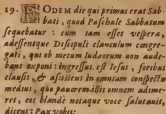 19. EODEM die qui primus erat Sab-
bati, quod Paschale Sabbatum
sequebatur : cum iam esset vespera,
adessentque Discipuli clanculum congre-
gati, quò ob metum Iudæorum non aude-
bant exponi: ingressus est Iesus, foribus
clausis, & assistens in omnium conspectu
medius, quò pavorem illis omnem adime-
ret, eos blandè notaque voce salutavit,
dicens: Pax vobis: